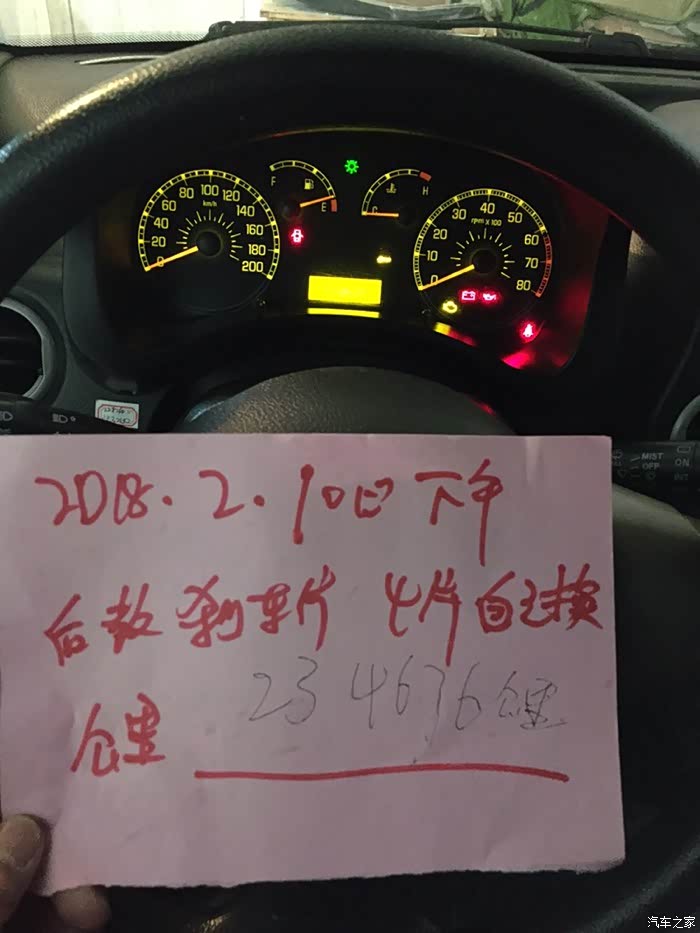 0 20 40 60 80 100 120 140 160 180 200
km/h
F E
C H
0 10 20 30 40 50 60 70 80
rpm x 100
MIST
OFF
ON
INT
2018.2.10日下午
后鼓刹车片 4片自己换
公里 234636公里
汽车之家